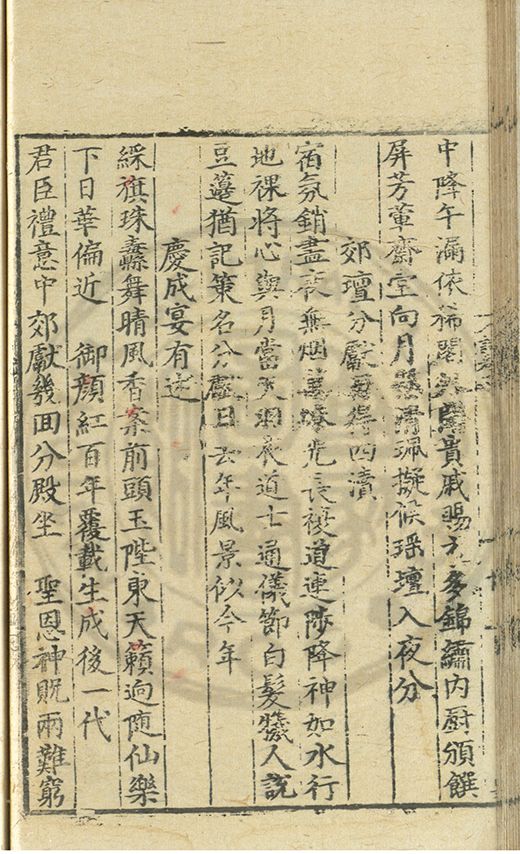 中降午漏依稀聞 貴戚賜 多錦繡內厨頒饌
屏芳葷齋堂向月 清珮擬候瑶壇入夜分
郊壇分獻 得四瀆
宿氛銷盡夜無烟 光長複道連陟降神如水行
地祼將心與月當天羽衣道士通儀節白髮 人說
豆籩猶記策名分獻日去年風景似今年
慶成宴有述
綵旗珠纛舞晴風香案前頭玉陛東天籟逈随仙樂
下日華偏近 御顔紅百年覆載生成後一代
君臣禮意中郊獻幾囬分殿坐 聖恩神貺兩難窮